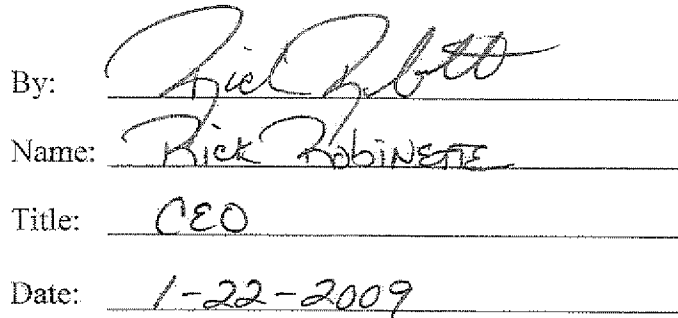 By: Rick Robinette
Name: Rick Robinette
Title: CEO
Date: 1-22-2009